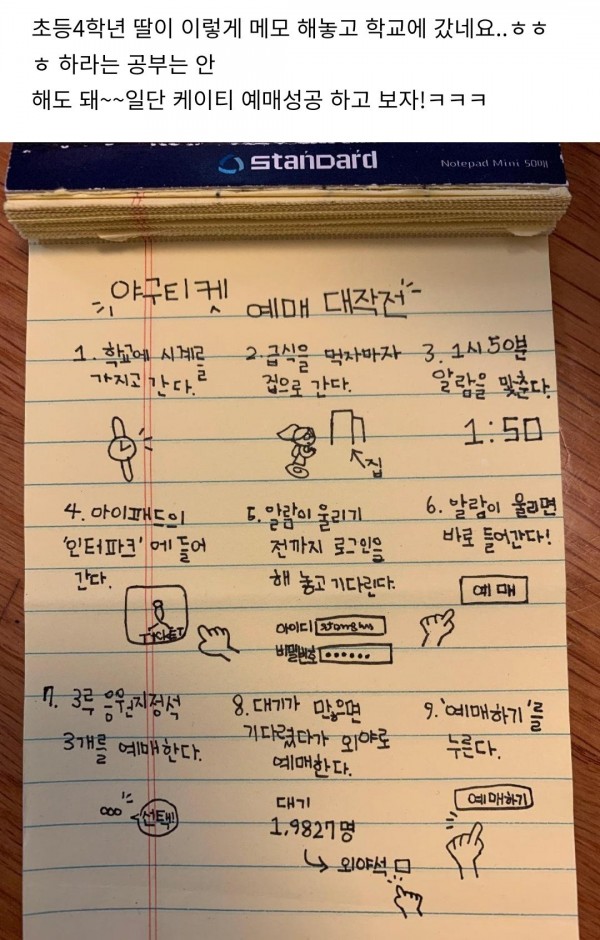 초등4학년 딸이 이렇게 메모 해놓고 학교에 갔네요..ㅎㅎ
ㅎ 하라는 공부는 안
해도 돼~~일단 케이티 예매성공 하고 보자!ㅋㅋㅋ
standard
Notepad Mini 50매
야구티켓 예매 대작전
1. 학교에 시계를
가지고 간다.
2. 급식을 먹자마자
집으로 간다.
3. 1시 50분
알람을 맞춘다.
집
1:50
4. 아이패드의
'인터파크'에 들어
간다.
TICKET
5. 알람이 울리기
전까지 로그인을
해 놓고 기다린다.
아이디
비밀번호 ••••••
6. 알람이 울리면
바로 들어간다!
예매
7. 3루 응원지정석
3개를 예매한다.
선택!
8. 대기가 많으면
기다렸다가 외야로
예매한다.
대기
1,9827명
외야석
9. '예매하기'를
누른다.
예매하기